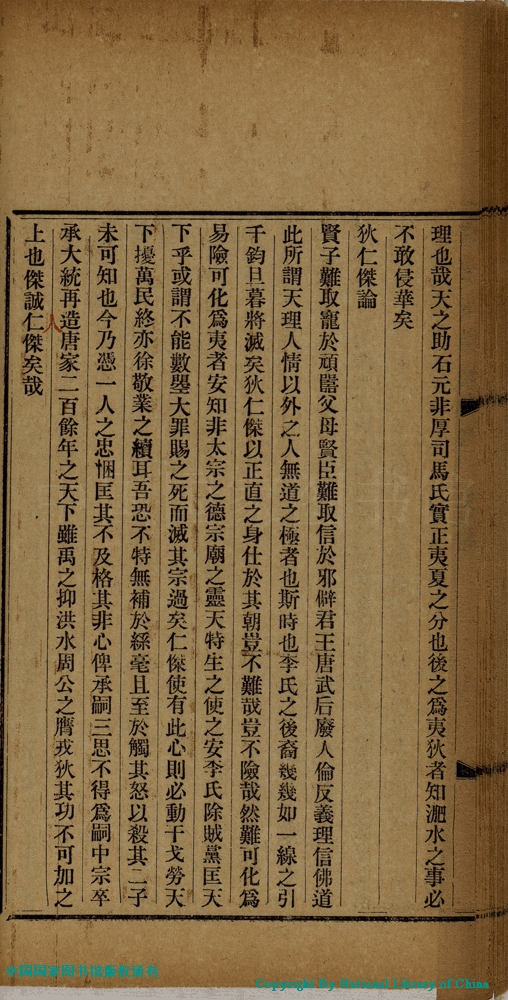 理也哉天之助石元非厚司馬氏實正夷夏之分也後之爲夷狄者知淝水之事必
不敢侵華矣
狄仁傑論
賢子難取寵於頑嚚父母賢臣難取信於邪僻君王唐武后廢人倫反義理信佛道
此所謂天理人情以外之人無道之極者也斯時也李氏之後裔幾幾如一線之引
千鈞旦暮將滅矣狄仁傑以正直之身仕於其朝豈不難哉豈不險哉然難可化爲
易險可化爲夷者安知非太宗之德宗廟之靈天特生之使之安李氏除賊黨匡天
下乎或謂不能數曌大罪賜之死而滅其宗過矣仁傑使有此心則必動干戈勞天
下擾萬民終亦徐敬業之續耳吾恐不特無補於絲毫且至於觸其怒以殺其二子
未可知也今乃憑一人之忠悃匡其不及格其非心俾承嗣三思不得爲嗣中宗卒
承大統再造唐家二百餘年之天下雖禹之抑洪水周公之膺戎狄其功不可加之
上也傑誠仁傑矣哉
人
中國國家圖書館版權所有
Copyright By National Library of China